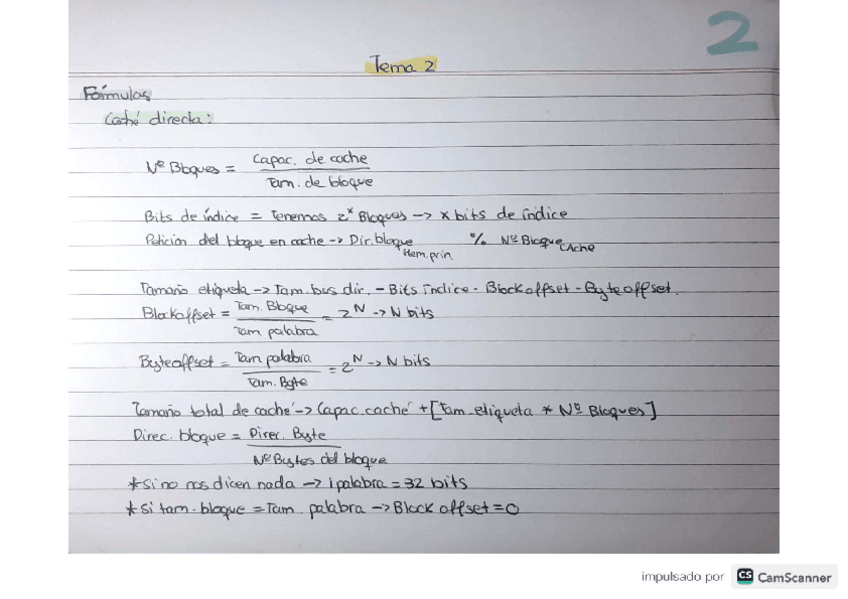 2
Tema 2
Fórmulas
Caché directa:
Nº Bloques = Capac. de cache / Tam. de bloque
Bits de índice = Tenemos 2^x Bloques -> x bits de índice
Posición del bloque en cache -> Dir. bloque Mem. prin. % Nº Bloque Cache
Tamaño etiqueta -> Tam. bus dir. - Bits índice - Block offset - Byte offset.
Block offset = Tam. Bloque / Tam palabra = 2^N -> N bits
Byte offset = Tam palabra / Tam. Byte = 2^N -> N bits
Tamaño total de caché -> Capac. caché + [Tam. etiqueta * Nº Bloques]
Direc. bloque = Direc. Byte / Nº Bytes del bloque
* Si no nos dicen nada -> 1 palabra = 32 bits
* Si tam. bloque = Tam. palabra -> Block offset = 0
impulsado por CS CamScanner